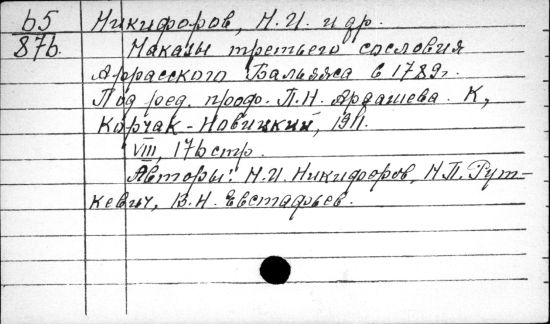 б5
87б.
Никифоров, Н.И. и др.
Наказы третьего сословия
Аррасского Бальяжа в 1789г.
Под ред. проф. П.Н. Ардашева. К,
Корчак-Новицкий, 1911.
VIII, 176 стр.
Авторы: Н.И. Никифоров, Н.П. Рут-
кевич, В.Н. Евстафьев.